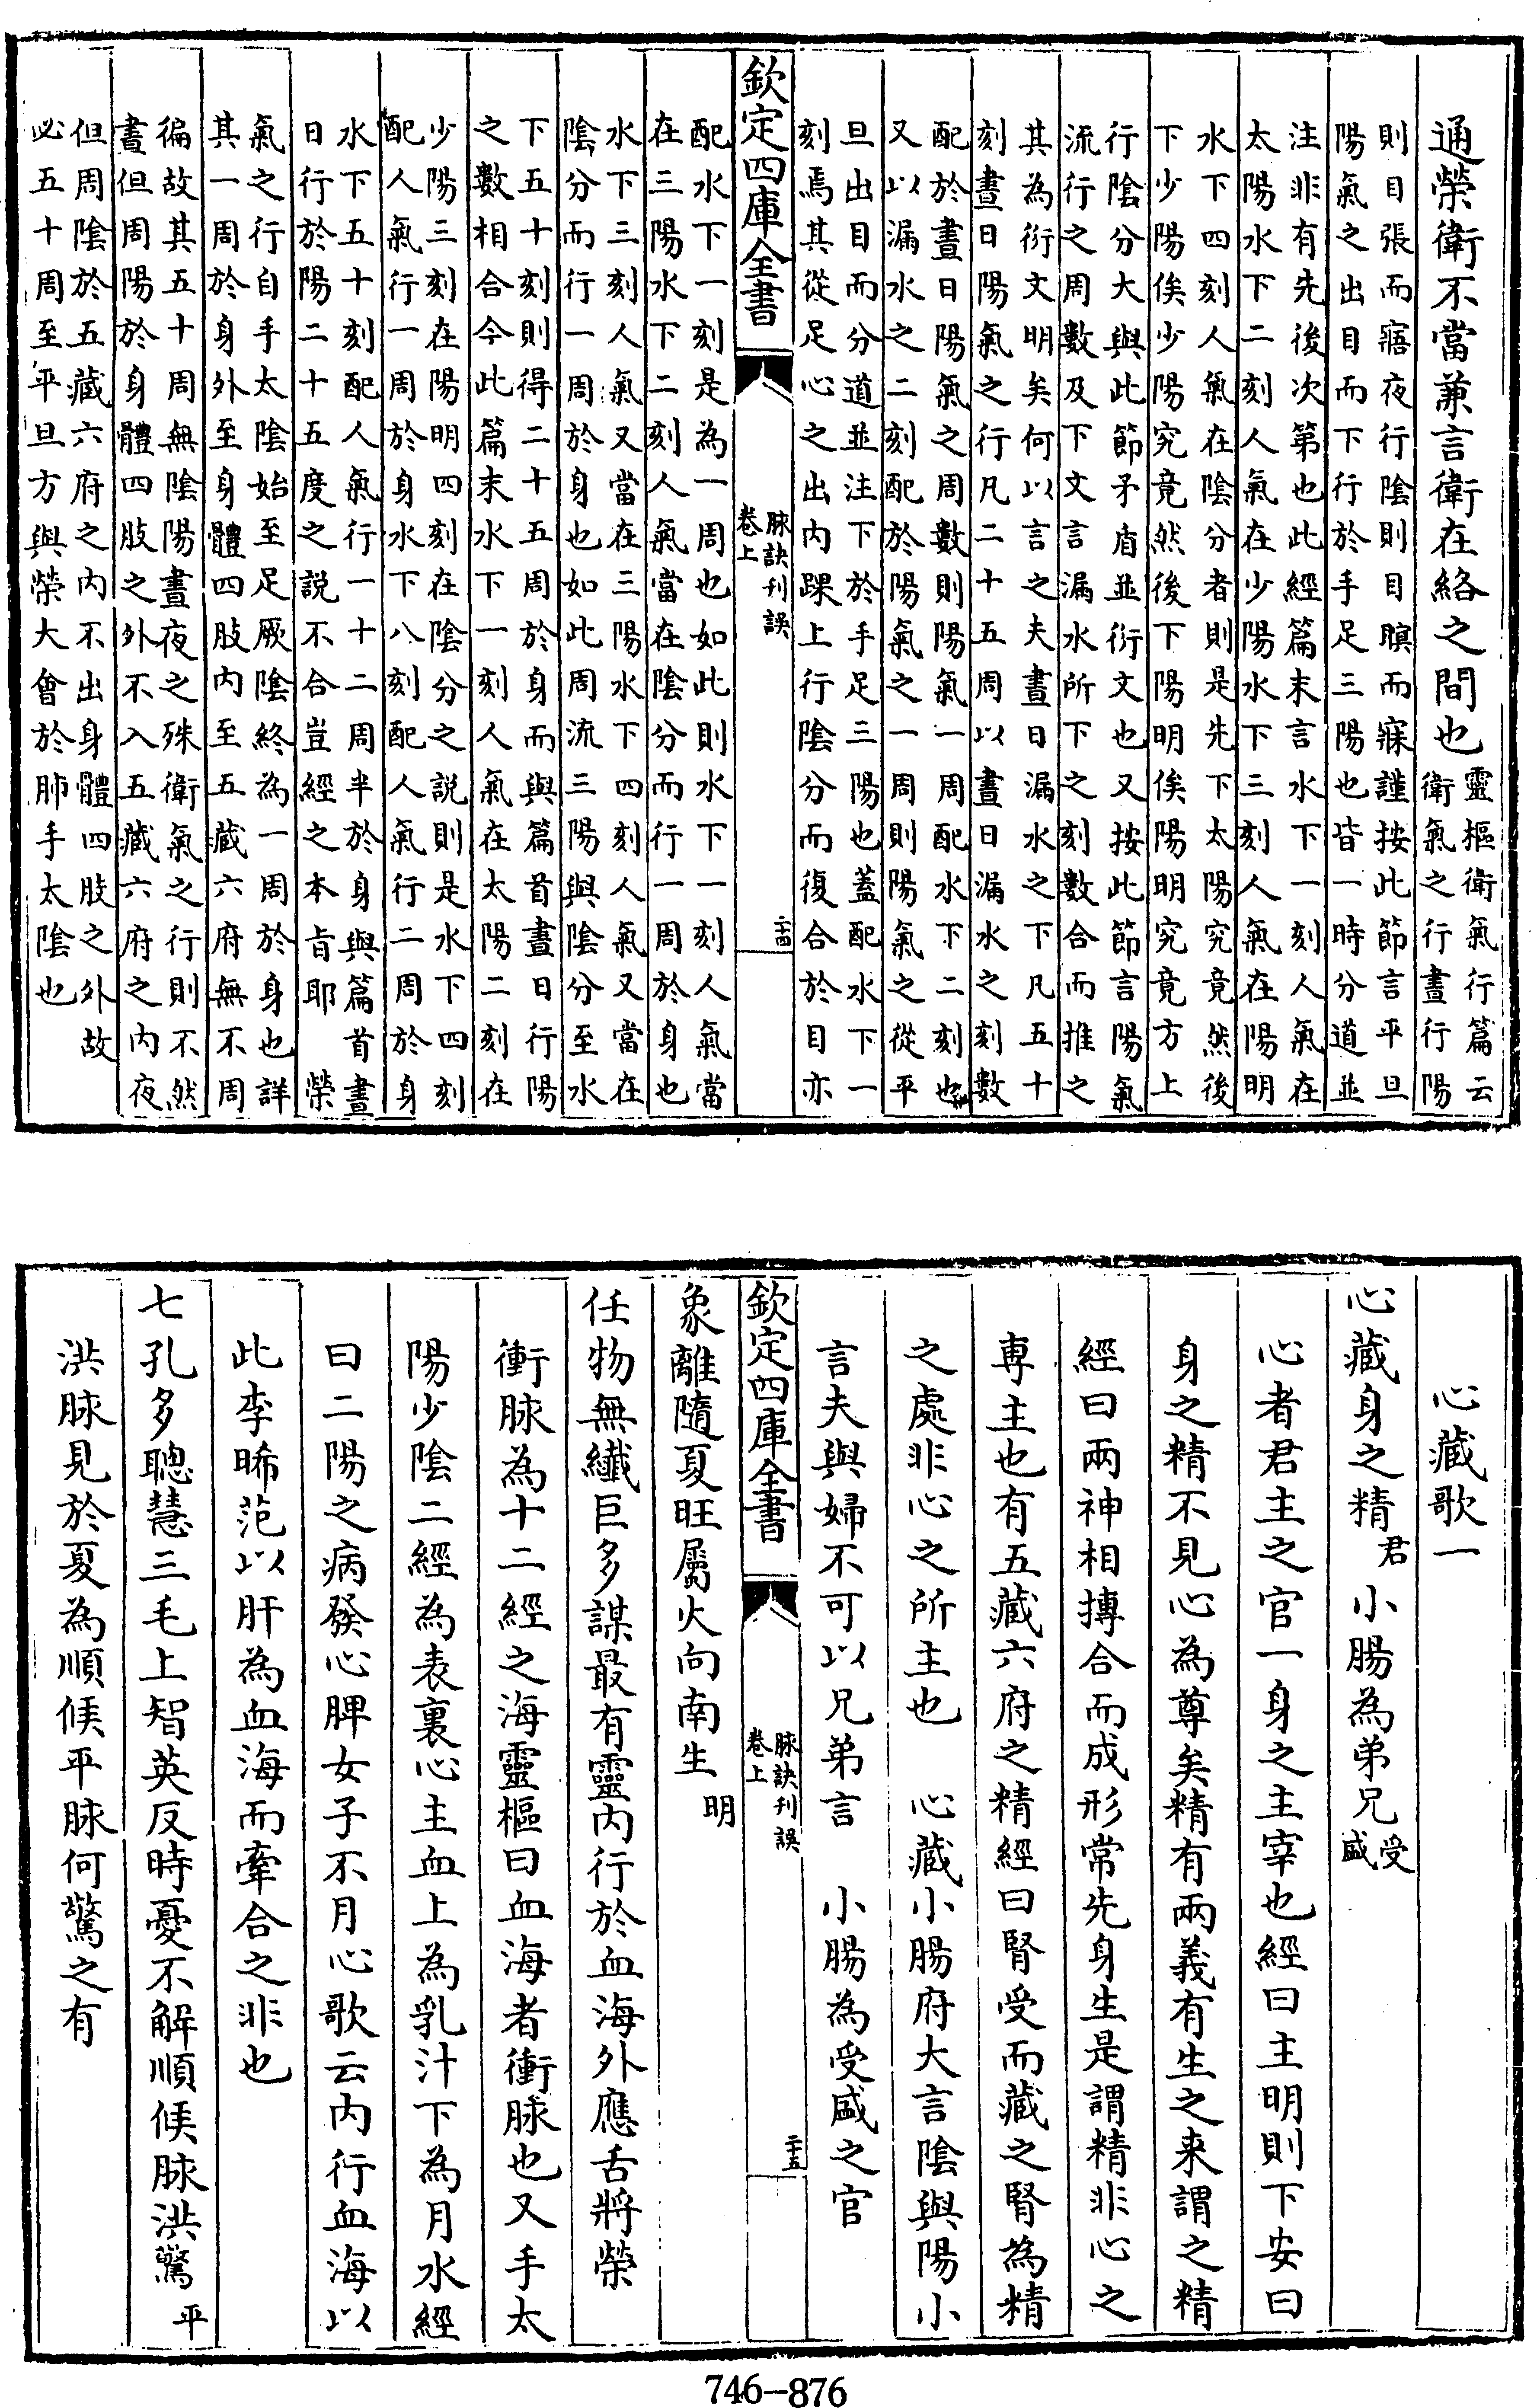 通榮衛不當兼言衛在絡之間也
靈樞衛氣行篇云
衛氣之行晝行陽
則目張而寤夜行陰則目瞑而寐謹按此節言平旦
陽氣之出目而下行於手足三陽也皆一時分道並
注非有先後次第也此經篇末言水下一刻人氣在
太陽水下二刻人氣在少陽水下三刻人氣在陽明
水下四刻人氣在陰分者則是先下太陽究竟然後
下少陽俟少陽究竟然後下陽明俟陽明究竟方上
行陰分大與此節矛盾並衍文也又按此節言陽氣
流行之周數及下文言漏水所下之刻數合而推之
其為衍文明矣何以言之夫晝日漏水之下凡五十
刻晝日陽氣之行凡二十五周以晝日漏水之刻數
配於晝日陽氣之周數則陽氣一周配水下二刻也
又以漏水之二刻配於陽氣之一周則陽氣之從平
旦出目而分道並注下於手足三陽也蓋配水下一
刻焉其從足心之出内踝上行陰分而復合於目亦
欽定四庫全書
脉訣刊誤
卷上
二十四
配水下一刻是為一周也如此則水下一刻人氣當
在三陽水下二刻人氣當在陰分而行一周於身也
水下三刻人氣又當在三陽水下四刻人氣又當在
陰分而行一周於身也如此周流三陽與陰分至水
下五十刻則得二十五周於身而與篇首晝日行陽
之數相合今此篇末水下一刻人氣在太陽二刻在
少陽三刻在陽明四刻在陰分之說則是水下四刻
配人氣行一周於身水下八刻配人氣行二周於身
水下五十刻配人氣行一十二周半於身與篇首晝
日行於陽二十五度之說不合豈經之本旨耶 榮
氣之行自手太陰始至足厥陰終為一周於身也詳
其一周於身外至身體四肢内至五藏六府無不周
徧故其五十周無陰陽晝夜之殊衛氣之行則不然
晝但周陽於身體四肢之外不入五藏六府之内夜
但周陰於五藏六府之内不出身體四肢之外故
必五十周至平旦方與榮大會於肺手太陰也
心藏歌一
心藏身之精君小腸為弟兄受盛
心者君主之官一身之主宰也經曰主明則下安曰
身之精不見心為尊矣精有兩義有生之來謂之精
經曰兩神相搏合而成形常先身生是謂精非心之
專主也有五藏六府之精經曰腎受而藏之腎為精
之處非心之所主也 心藏小腸府大言陰與陽小
言夫與婦不可以兄弟言 小腸為受盛之官
欽定四庫全書
脉訣刊誤
卷上
二十五
象離隨夏旺屬火向南生明
任物無纎巨多謀最有靈内行於血海外應舌將榮
衝脉為十二經之海靈樞曰血海者衝脉也又手太
陽少陰二經為表裏心主血上為乳汁下為月水經
曰二陽之病發心脾女子不月心歌云内行血海以
此李晞范以肝為血海而牽合之非也
七孔多聰慧三毛上智英反時憂不解順候脉洪驚平
洪脉見於夏為順候平脉何驚之有
746-876